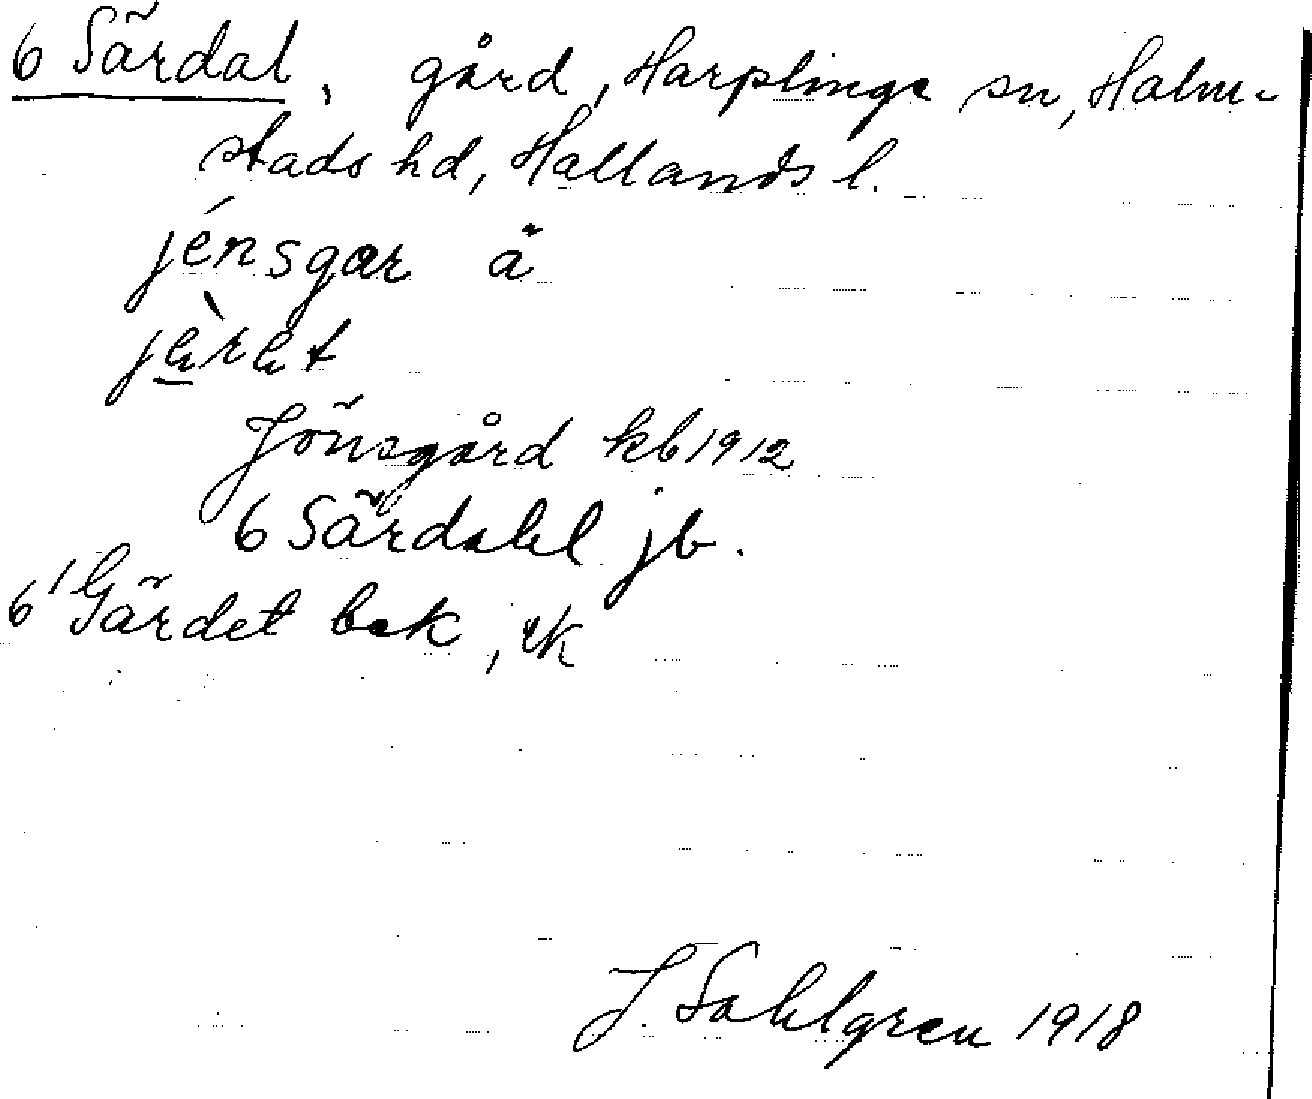 6 Särdal, gård, Harplinge sn, Halm-
stads hd, Hallands l.
jénsgar å
jæ̀ræt
Jönsgård kb 1912
6 Särdahl jb.
6¹ Gärdet bek, rk
J. Sahlgren 1918